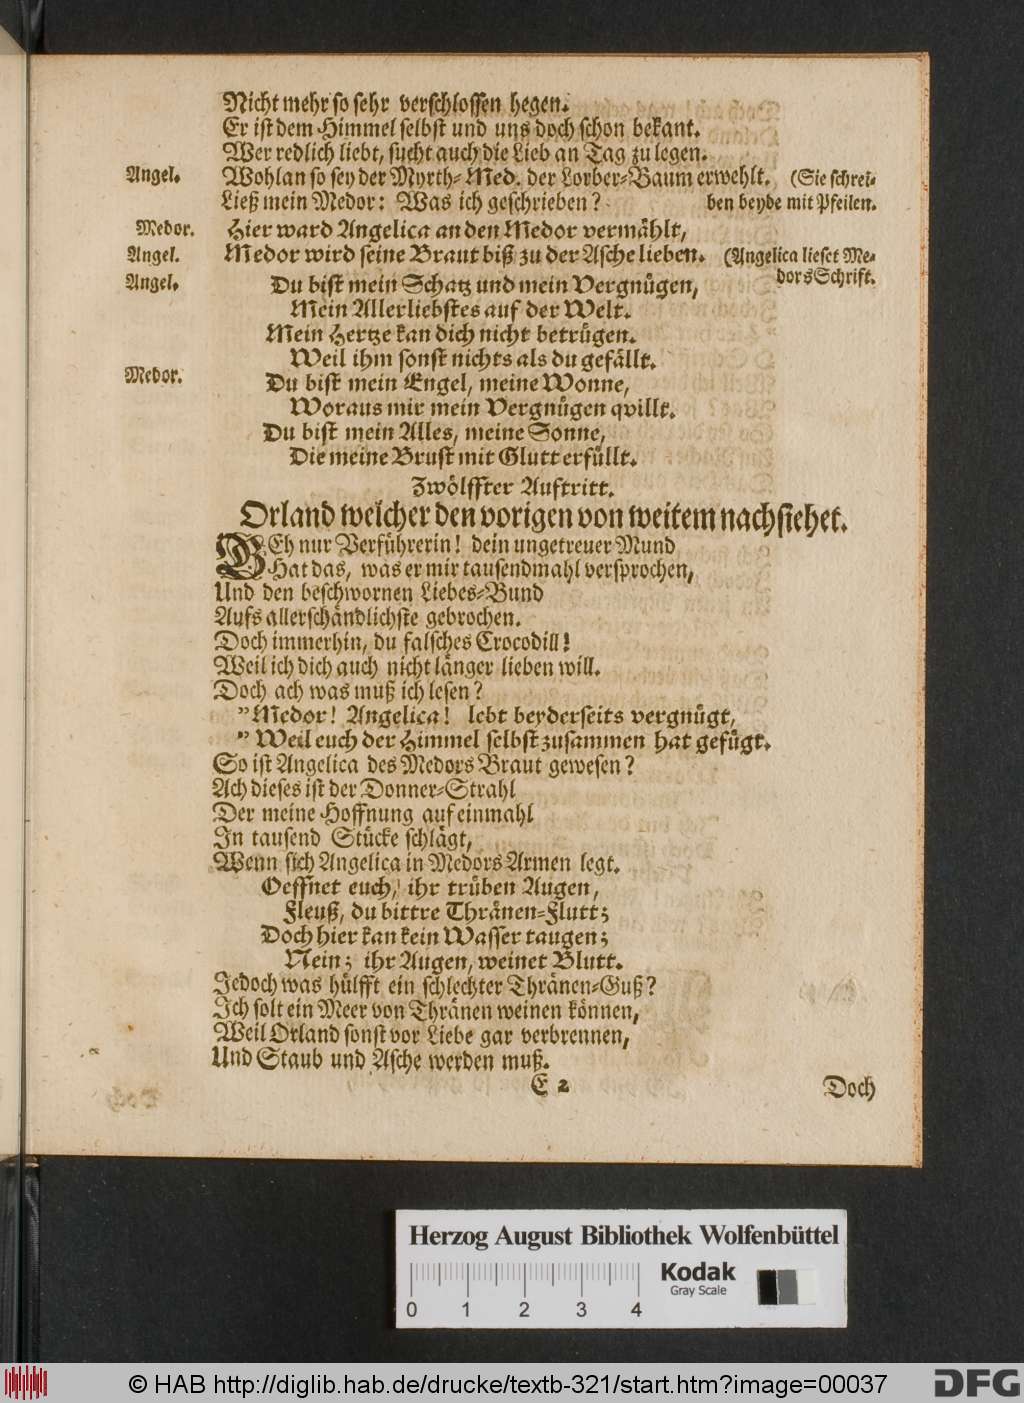 Nicht mehr so sehr verschlossen hegen.
Er ist dem Himmel selbst und uns doch schon bekant.
Wer redlich liebt, sucht auch die Lieb an Tag zu legen.
Angel. Wohlan so sey der Myrth- Med. der Lorber-Baum erwehlt. (Sie schrei-
Ließ mein Medor: Was ich geschrieben? ben beyde mit Pfeilen.
Medor. Hier ward Angelica an den Medor vermählt,
Angel. Medor wird seine Braut biß zu der Asche lieben. (Angelica lieset Me-
dors Schrift.
Angel. Du bist mein Schatz und mein Vergnügen,
Mein Allerliebstes auf der Welt.
Mein Hertze kan dich nicht betrügen.
Weil ihm sonst nichts als du gefällt.
Medor. Du bist mein Engel, meine Wonne,
Woraus mir mein Vergnügen qvillt.
Du bist mein Alles, meine Sonne,
Die meine Brust mit Glutt erfüllt.
Zwölffter Auftritt.
Orland welcher den vorigen von weitem nachsiehet.
GEh nur Verführerin! dein ungetreuer Mund
Hat das, was er mir tausendmahl versprochen,
Und den beschwornen Liebes-Bund
Aufs allerschändlichste gebrochen.
Doch immerhin, du falsches Crocodill!
Weil ich dich auch nicht länger lieben will.
Doch ach was muß ich lesen?
"Medor! Angelica! lebt beyderseits vergnügt,
"Weil euch der Himmel selbst zusammen hat gefügt.
So ist Angelica des Medors Braut gewesen?
Ach dieses ist der Donner-Strahl
Der meine Hoffnung auf einmahl
In tausend Stücke schlägt,
Wenn sich Angelica in Medors Armen legt.
Oeffnet euch, ihr trüben Augen,
Fleuß, du bittre Thränen-Flutt;
Doch hier kan kein Wasser taugen;
Nein; ihr Augen, weinet Blutt.
Jedoch was hülfft ein schlechter Thränen-Guß?
Ich solt ein Meer von Thränen weinen können,
Weil Orland sonst vor Liebe gar verbrennen,
Und Staub und Asche werden muß.
E 2 Doch
Herzog August Bibliothek Wolfenbüttel
Kodak
Gray Scale
0 1 2 3 4
© HAB http://diglib.hab.de/drucke/textb-321/start.htm?image=00037
DFG